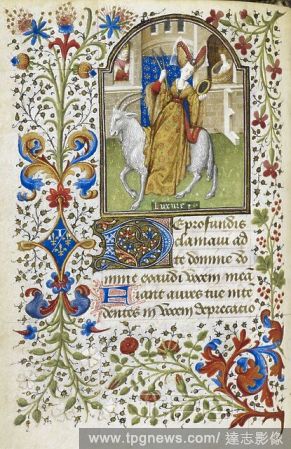 Luxure
De profundis
clamaui ad
te domine do
mine exaudi uocem mea
Fiant aures tue inte
dentes in uocem deprecacio
www.tpgnews.com/ 達志影像